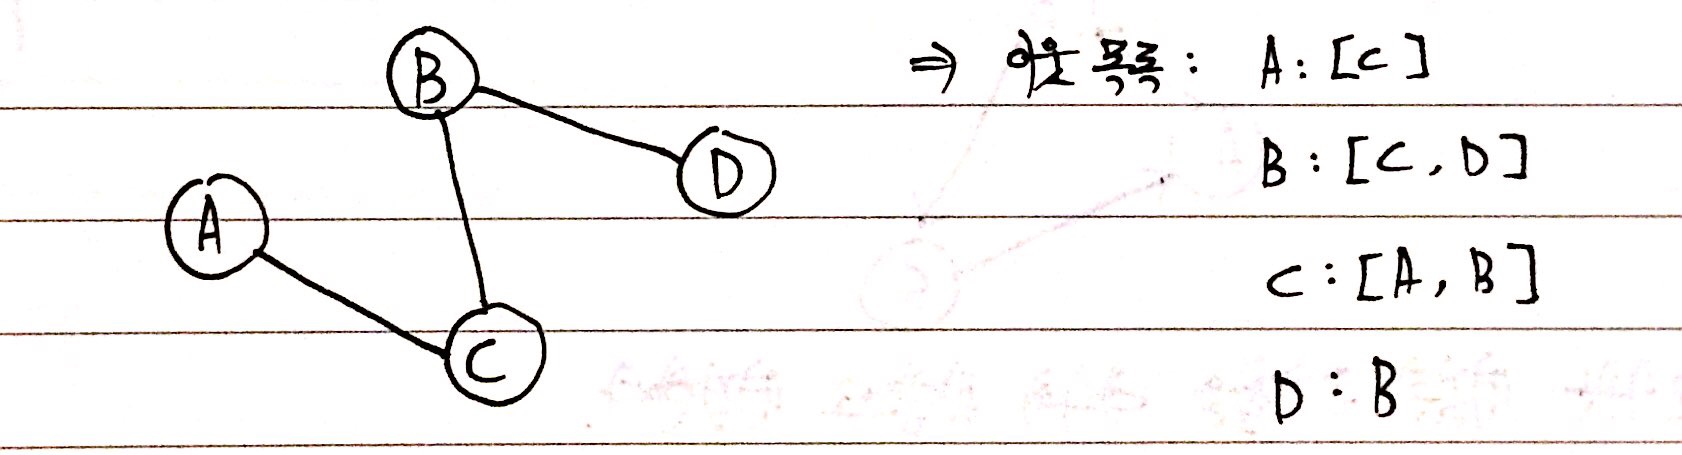 B
D
A
C
⇒ 이웃 목록 : A : [C]
B : [C, D]
C : [A, B]
D : B